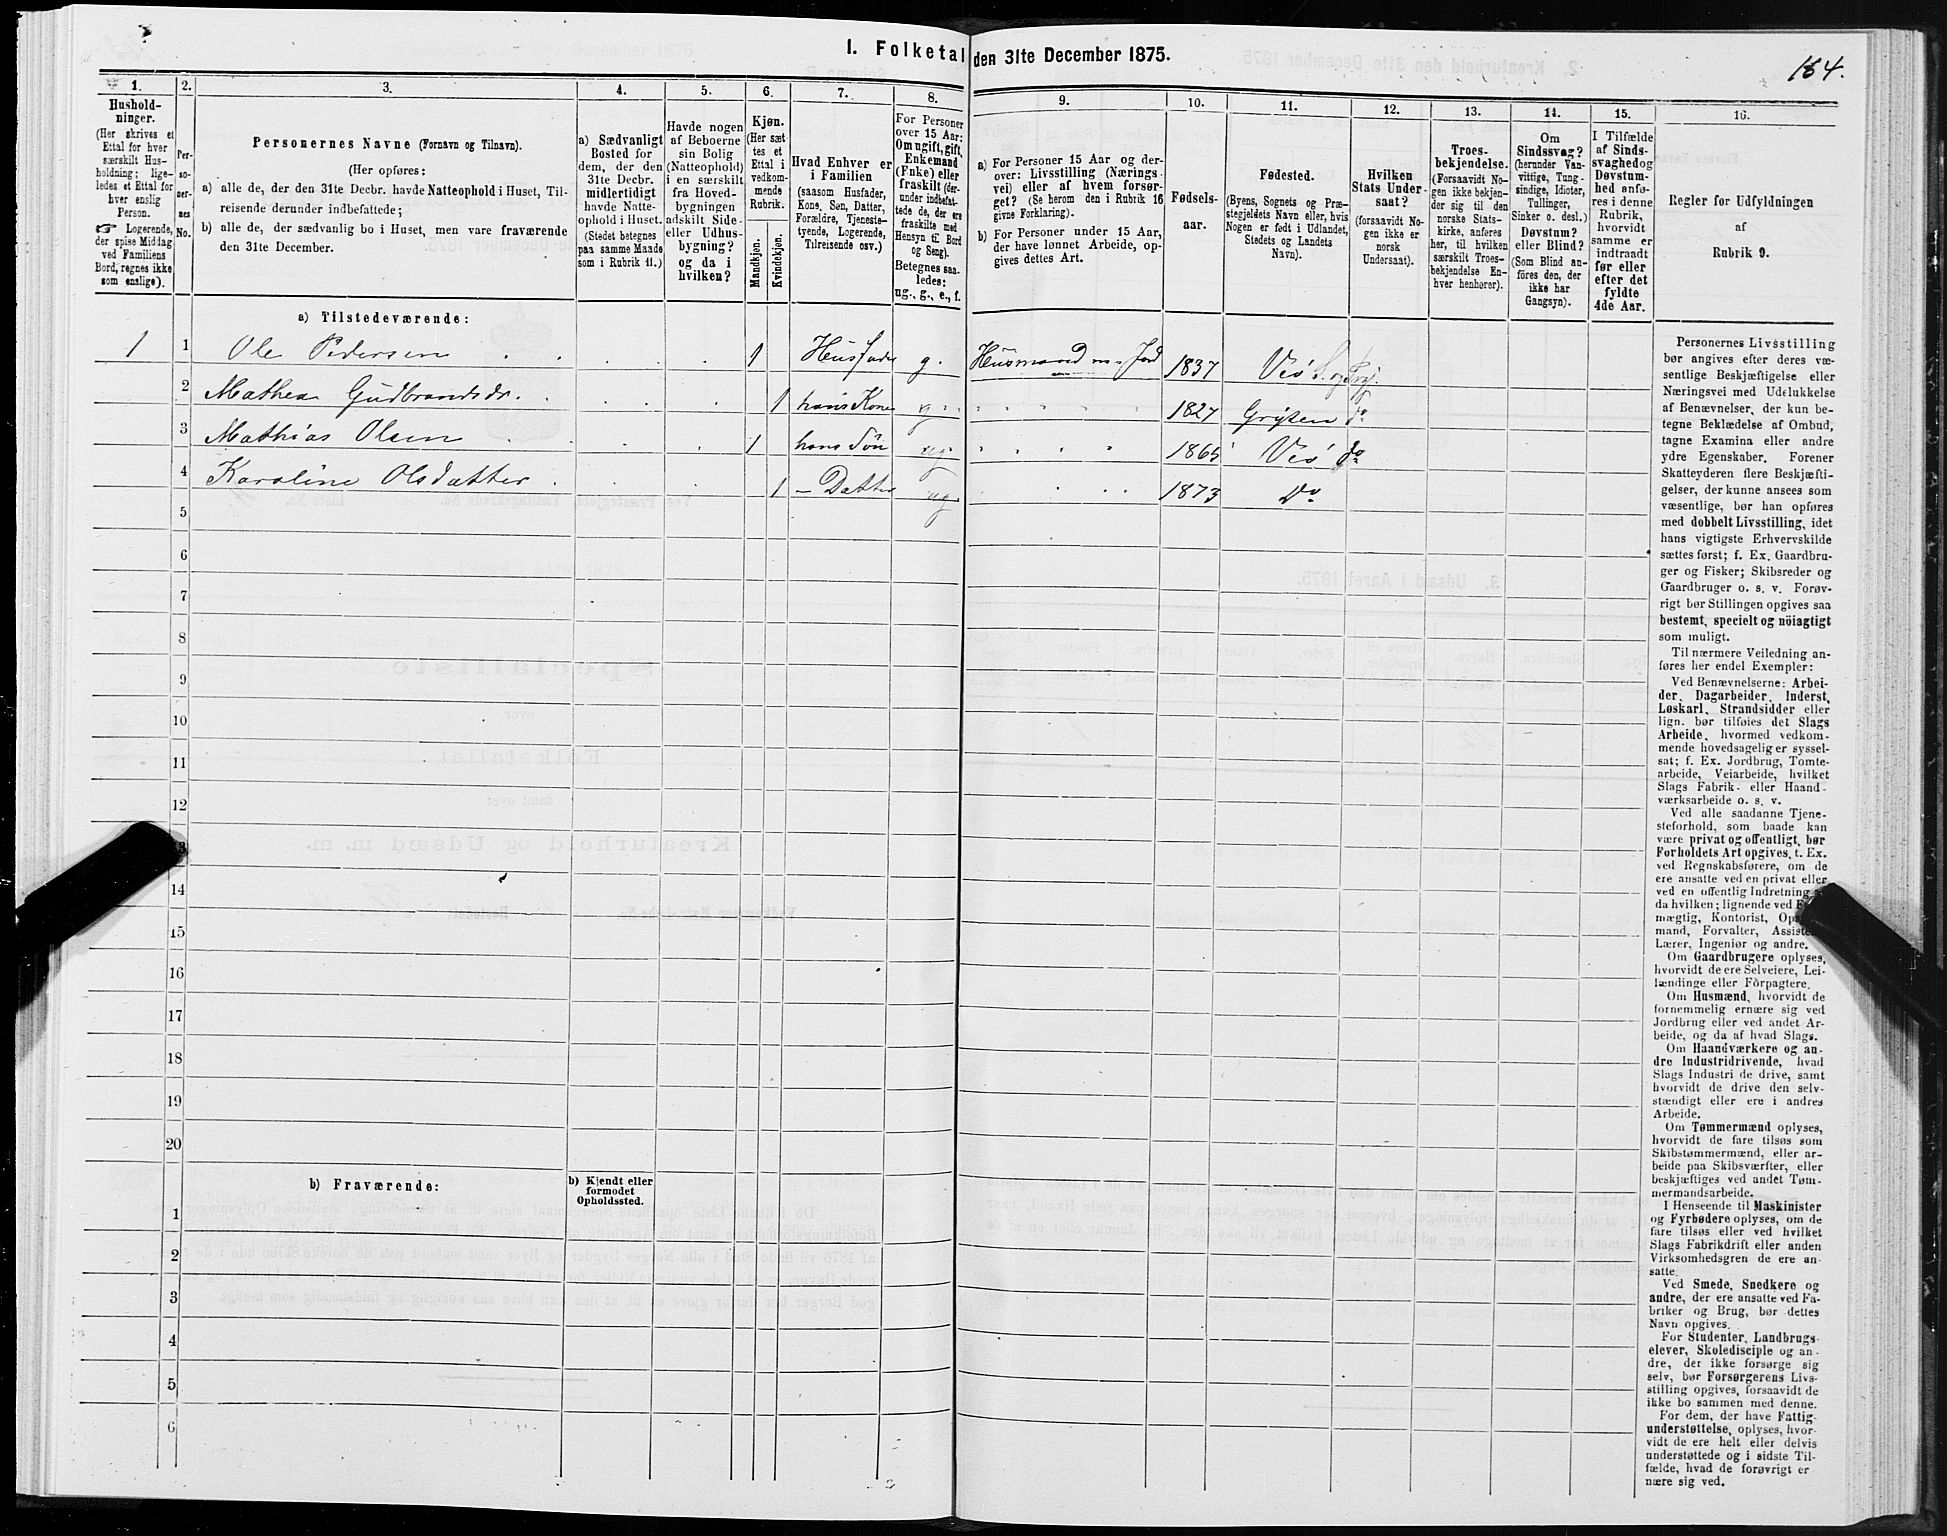 I. Folketal den 31te December 1875.
164.
1.
Hushold-
ninger.
(Her skrives et
Ettal for hver
særskilt Hus-
holdning; lige-
ledes et Ettal for
hver enslig
Person.
☞ Logerende,
der spise Middag
ved Familiens
Bord, regnes ikke
som enslige).
2.
Per-
so-
ner-
nes
No.
3.
Personernes Navne (Fornavn og Tilnavn).
(Her opføres:
a) alle de, der den 31te Decbr. havde Natteophold i Huset, Til-
reisende derunder indbefattede;
b) alle de, der sædvanlig bo i Huset, men vare fraværende
den 31te December.
4.
a) Sædvanligt
Bosted for
dem, der den
31te Decbr.
midlertidigt
havde Natte-
ophold i Huset.
(Stedet betegnes
paa samme Maade
som i Rubrik 11.)
5.
Havde nogen
af Beboerne
sin Bolig
(Natteophold)
i en særskilt
fra Hoved-
bygningen
adskilt Side-
eller Udhus-
bygning?
og da i
hvilken?
6.
Kjøn.
(Her sæt
tes et
Ettal i
vedkom-
mende
Rubrik.
Mandkjøn.
Kvindekjøn.
7.
Hvad Enhver er
i Familien
(saasom Husfader,
Kone, Søn, Datter,
Forældre, Tjeneste-
tyende, Logerende,
Tilreisende osv.)
8.
For Personer
over 15 Aar:
Om ugift, gift,
Enkemand
(Enke) eller
fraskilt (der-
under indbefat-
tede de, der ere
fraskilte med
Hensyn til Bord
og Seng).
Betegnes saa-
ledes:
ug., g., e., f.
9.
a) For Personer 15 Aar og der-
over: Livsstilling (Nærings-
vei) eller af hvem forsør-
get? (Se herom den i Rubrik 16
givne Forklaring).
b) For Personer under 15 Aar,
der have lønnet Arbeide, op-
gives dettes Art.
10.
Fødsels-
aar.
11.
Fødested.
(Byens, Sognets og Præ-
stegjeldets Navn eller, hvis
Nogen er født i Udlandet,
Stedets og Landets
Navn).
12.
Hvilken
Stats Under-
saat?
(forsaavidt No-
gen ikke er
norsk
Undersaat).
13.
Troes-
bekjendelse.
(Forsaavidt No-
gen ikke bekjen-
der sig til den
norske Stats-
kirke, anføres
her, til hvilken
særskilt Troes-
bekjendelse En-
hver henhører).
14.
Om
Sindssvag?
(herunder Van-
vittige, Tung-
sindige, Idioter,
Tullinger,
Sinker o. desl.)
Døvstum?
eller Blind?
(Som Blind an-
føres den, der
ikke har
Gangsyn).
15.
I Tilfælde
af Sinds-
svaghed og
Døvstum-
hed anfø-
res i denne
Rubrik,
hvorvidt
samme er
indtraadt
før eller
efter det
fyldte
4de Aar.
16.
Regler for Udfyldningen
af
Rubrik 9.
a) Tilstedeværende:
1 1 Ole Pedersen 1 Husfader g. Husmand m. Jord 1837 Veø S. og Prgj.
2 Mathea Gudbrandsdr. 1 hans Kone g. 1827 Grytten do
3 Mathias Olsen 1 hans Søn ug. 1865 Veø do
4 Karoline Olsdatter 1 — Datter ug. 1873 Do
5
6
7
8
9
10
11
12
13
14
15
16
17
18
19
20
b) Fraværende:
b) Kjendt eller
formodet
Opholdssted.
1
2
3
4
5
6
Personernes Livsstilling
bør angives efter deres væ-
sentlige Beskjæftigelse eller
Næringsvei med Udelukkelse
af Benævnelser, der kun be-
tegne Beklædelse af Ombud,
tagne Examina eller andre
ydre Egenskaber. Forener
Skatteyderen flere Beskjæfti-
gelser, der kunne ansees som
væsentlige, bør han opføres
med dobbelt Livsstilling, idet
hans vigtigste Erhvervskilde
sættes først; f. Ex. Gaardbru-
ger og Fisker; Skibsreder og
Gaardbruger o. s. v. Forøv-
rigt bør Stillingen opgives saa
bestemt, specielt og nöiagtigt
som muligt.
Til nærmere Veiledning an-
føres her endel Exempler:
Ved Benævnelserne: Arbei-
der, Dagarbeider, Inderst,
Løskarl, Strandsidder eller
lign. bør tilføies det Slags
Arbeide, hvormed vedkom-
mende hovedsagelig er syssel-
sat; f. Ex. Jordbrug, Tomte-
arbeide, Veiarbeide, hvilket
Slags Fabrik- eller Haand-
værksarbeide o. s. v.
Ved alle saadanne Tjene-
steforhold, som baade kan
være privat og offentligt, bør
Forholdets Art opgives, t. Ex.
ved Regnskabsførere, om de
ere ansatte ved en privat eller
ved en offentlig Indretning og
da hvilken; lignende ved
mægtig, Kontorist,
mand, Forvalter,
Lærer, Ingeniør og andre.
Om Gaardbrugere oplyses,
hvorvidt de ere Selveiere, Lei-
lændinge eller Fòrpagtere.
Om Husmænd, hvorvidt de
fornemmelig ernære sig ved
Jordbrug eller ved andet Ar-
beide, og da af hvad Slags.
Om Haandværkere og an-
dre Industridrivende, hvad
Slags Industri de drive, samt
hvorvidt de drive den selv-
stændigt eller ere i andres
Arbeide.
Om Tømmermænd oplyses,
hvorvidt de fare tilsøs som
Skibstømmermænd, eller ar-
beide paa Skibsværfter, eller
beskjæftiges ved andet Tøm-
mermandsarbeide.
I Henseende til Maskinister
og Fyrbødere oplyses, om de
fare tilsøs eller ved hvilket
Slags Fabrikdrift eller anden
Virksomhedsgren de ere an-
satte.
Ved Smede, Snedkere og
andre, der ere ansatte ved Fa-
briker og Brug, bør dettes
Navn opgives.
For Studenter, Landbrugs-
elever, Skoledisciple og an-
dre, der ikke forsørge sig
selv, bør Forsørgerens Livs-
stilling opgives, forsaavidt de
ikke bo sammen med denne.
For dem, der have Fattig-
understøttelse, oplyses, hvor-
vidt de ere helt eller delvis
understøttede og i sidste Til-
fælde, hvad de forøvrigt er
nære sig ved.